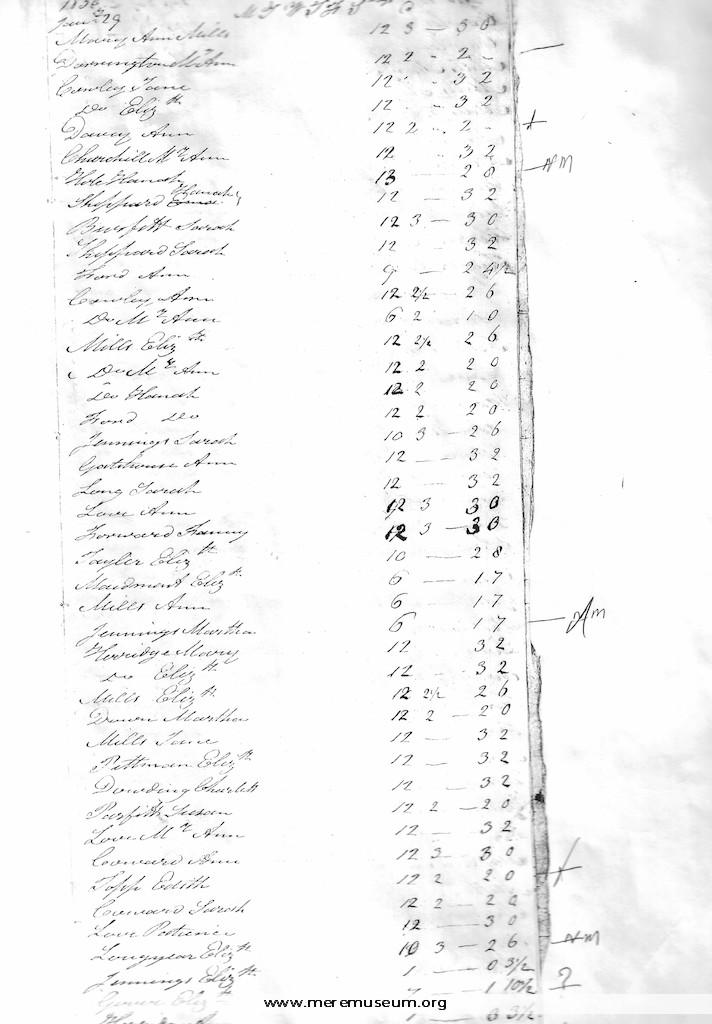 1836 M T W T F S
Janry 29
Mary Ann Mills 12 3 — 3 0
Dorrington My Ann 12 2 - 2 -
Cowley Jane 12 - 3 2
Do Elizth 12 - 3 2
Davey Ann 12 2 - 2 -
Churchill My Ann 12 3 2
Hole Hanah 13 — 2 8
Sheppard Hanah 12 — 3 2
Sarah 12 3 — 3 0
Sheppard Sarah 12 — 3 2
Ford Ann 9 — 2 4½
Cowley Ann 12 2½ — 2 6
Do My Ann 6 2 1 0
Mills Elizth 12 2½ 2 6
Do My Ann 12 2 2 0
Do Hanah 12 2 2 0
Ford Do 12 2 2 0
Jennings Sarah 10 3 — 2 6
Gatehouse Ann 12 — 3 2
Long Sarah 12 — 3 2
Love Ann 12 3 3 0
Forward Fanny 12 3 — 3 0
Tayler Elizth 10 — 2 8
Maidment Elizth 6 — 1 7
Mills Ann 6 1 7
Jennings Martha 6 1 7
Horridge Mary 12 3 2
Do Elizth 12 3 2
Mills Elizth 12 2½ 2 6
Martha 12 2 — 2 0
Mills Jane 12 — 3 2
Pittman Elizth 12 — 3 2
Dowding Charlett 12 3 2
Parfitt Susan 12 2 — 2 0
Love My Ann 12 — 3 2
Coward Ann 12 3 — 3 0
Topp Edith 12 2 2 0
Coward Sarah 12 2 — 2 0
Love Patience 12 — 3 0
Longyear Elizth 10 3 — 2 6
Jennings Elizth 1 — 0 3½
Elizth 1 10½
Ann 1 — 0 3½
www.meremuseum.org